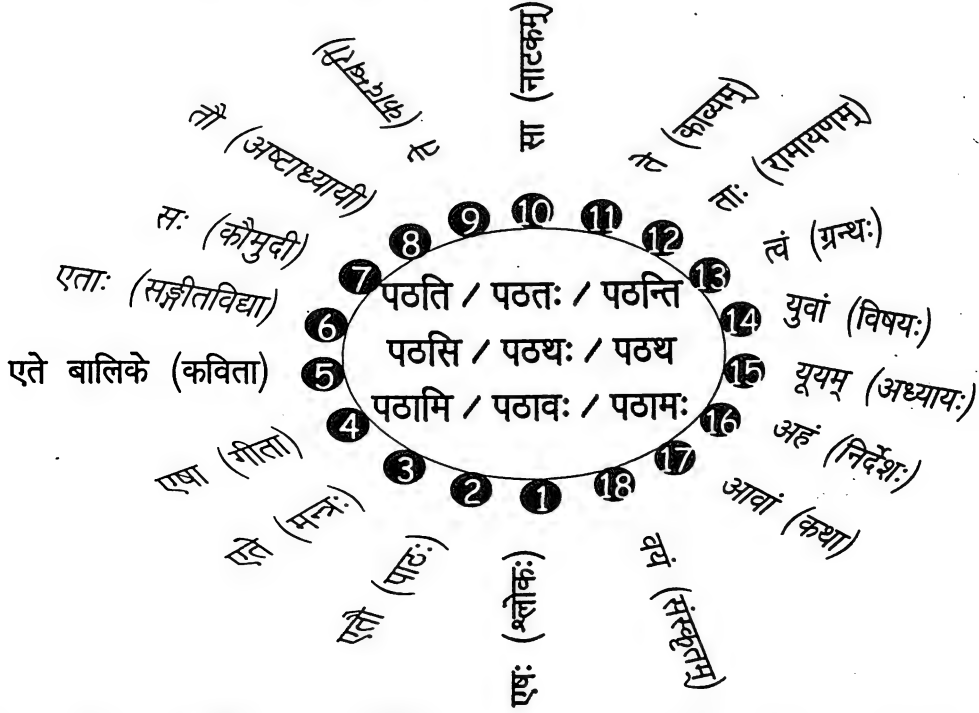 पठति / पठतः / पठन्ति
पठसि / पठथः / पठथ
पठामि / पठावः / पठामः
1 एषः (श्लोकः)
2 एतौ (पाठः)
3 एते (मन्त्रः)
4 एषा (गीता)
5 एते बालिके (कविता)
6 एताः (सङ्गीतविद्या)
7 सः (कौमुदी)
8 तौ (अष्टाध्यायी)
9 ते (कादम्बरी)
10 सा (नाटकम्)
11 ते (काव्यम्)
12 ताः (रामायणम्)
13 त्वं (ग्रन्थः)
14 युवां (विषयः)
15 यूयम् (अध्यायः)
16 अहं (निर्देशः)
17 आवां (कथा)
18 वयं (संस्कृतम्)